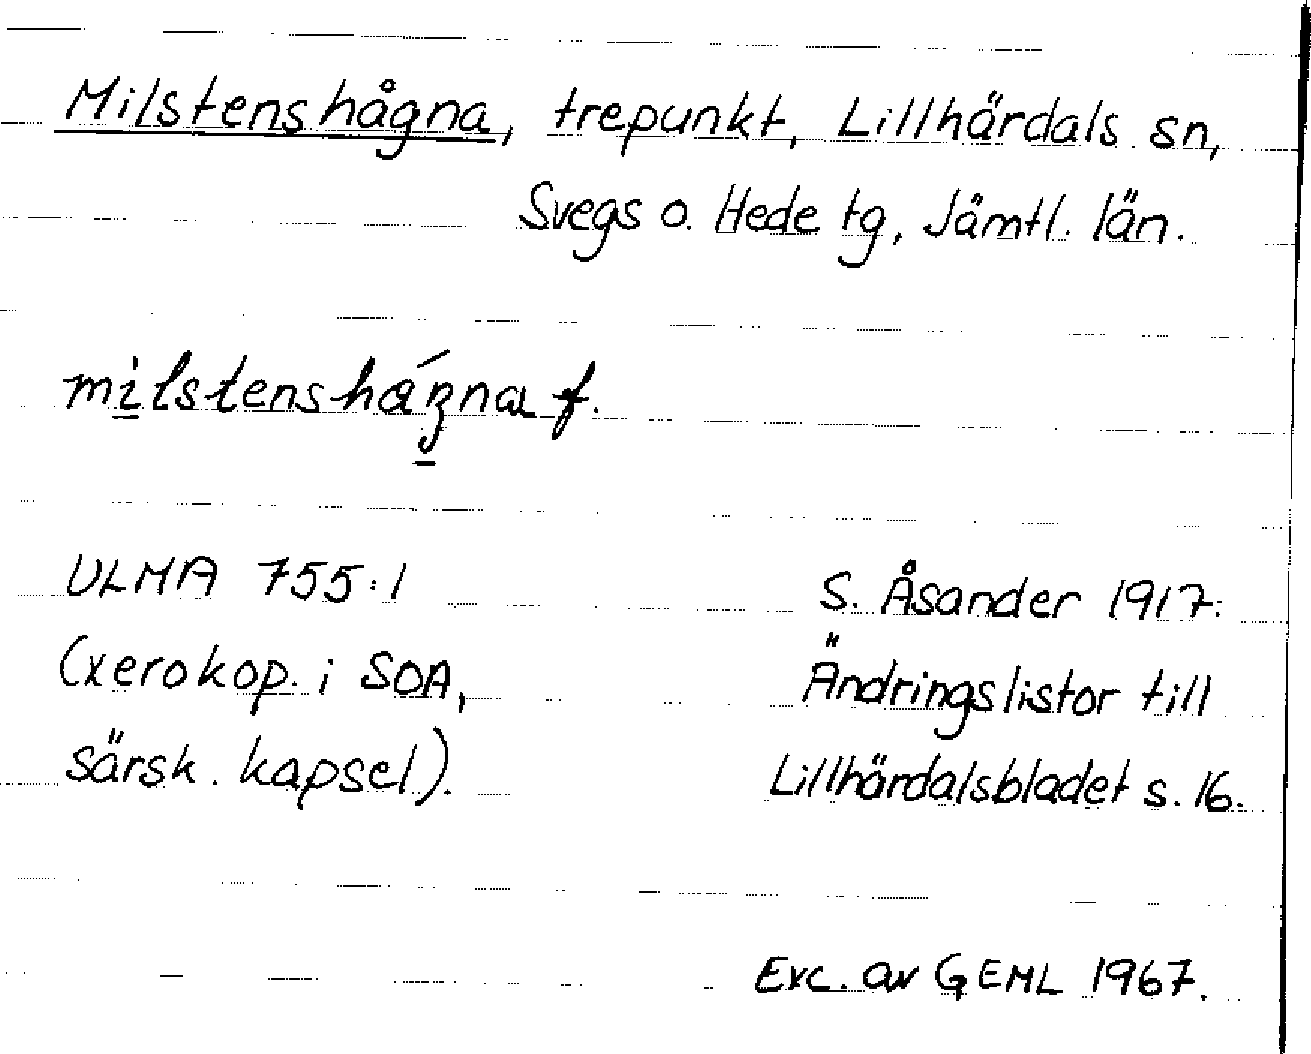 Milstenshågna, trepunkt, Lillhärdals sn,
Svegs o. Hede tg, Jämtl. län.
milstenshaʹgna f.
ULMA 755:1
(xerokop. i SOA,
särsk. kapsel).
S. Åsander 1917:
Ändringslistor till
Lillhärdalsbladet s. 16.
Exc. av GEML 1967.